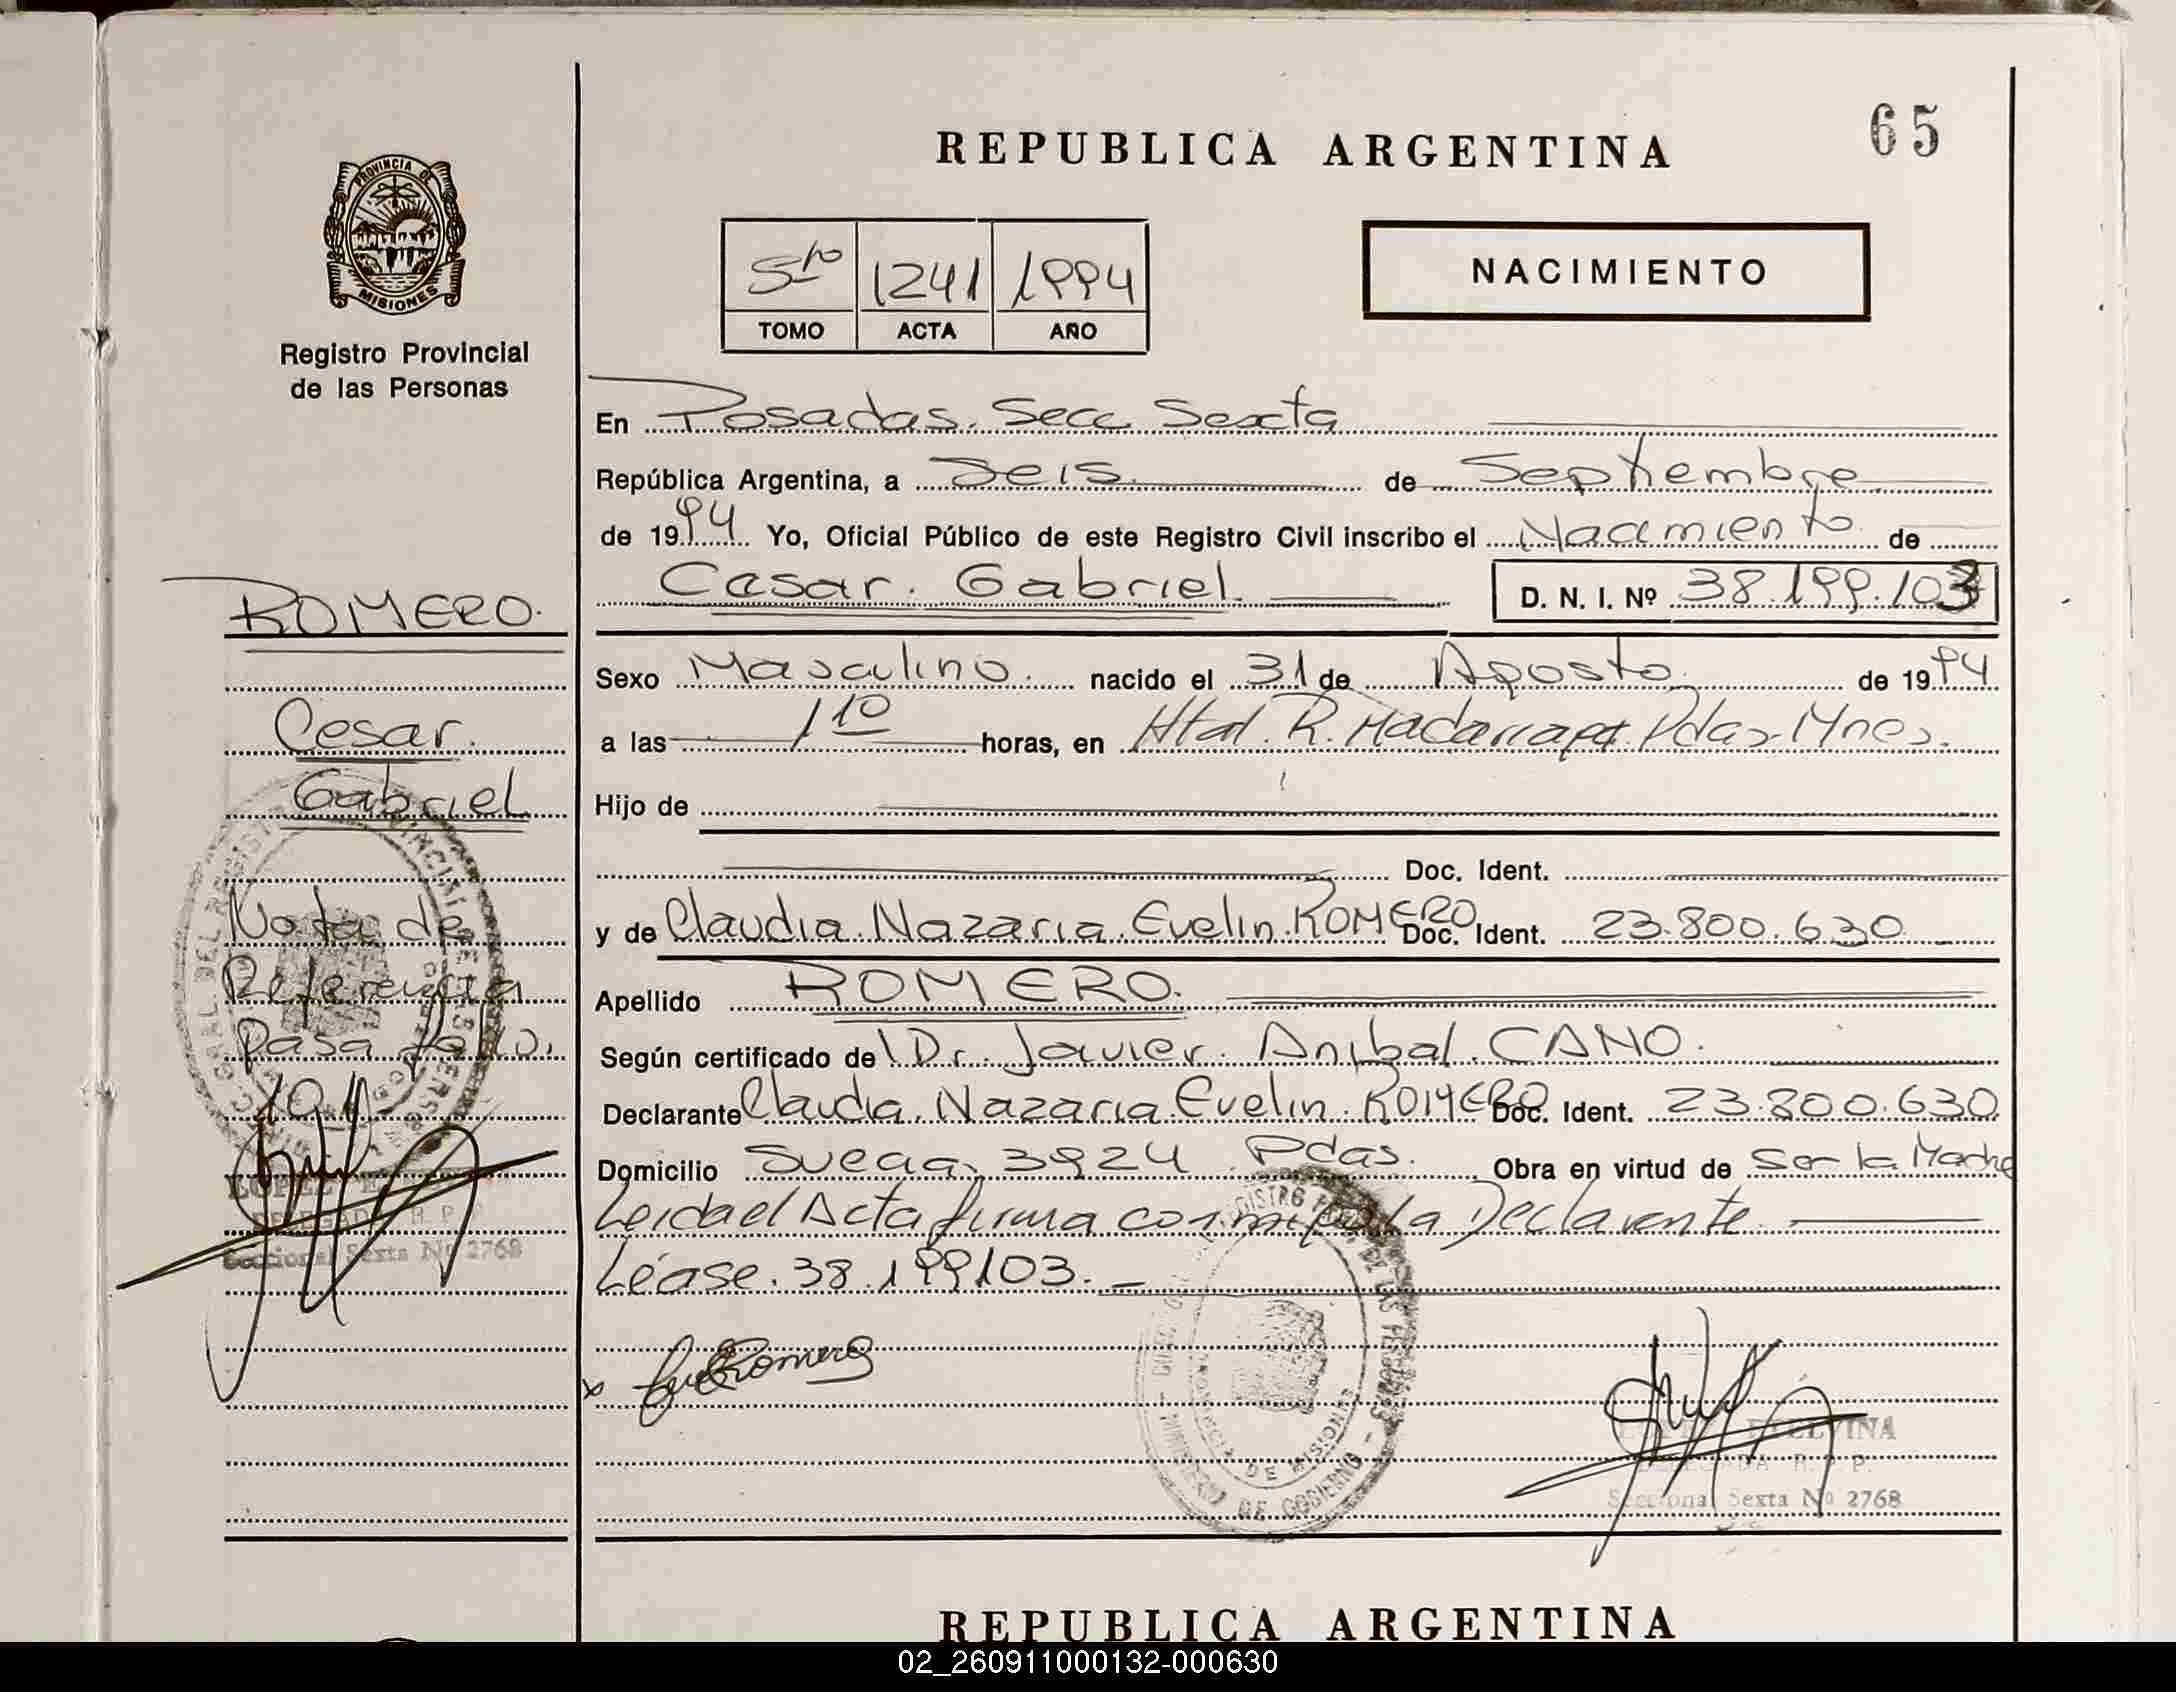 65
REPUBLICA ARGENTINA
PROVINCIA DE
MISIONES
Registro Provincial
de las Personas
5to 1241 1994
TOMO ACTA AÑO
NACIMIENTO
En Posadas. Secc Sexta
República Argentina, a Seis de Septiembre
de 1994 Yo, Oficial Público de este Registro Civil inscribo el Nacimiento de
Cesar. Gabriel D. N. I. Nº 38.199.103
Sexo Masculino. nacido el 31 de Agosto. de 1994
a las 1 10 horas, en Htal. R. Madariaga. Pdas. Mnes.
Hijo de
Doc. Ident.
y de Claudia. Nazaria. Evelin. ROMERO Doc. Ident. 23.800.630
Apellido ROMERO.
Según certificado de Dr. Javier. Anibal. CANO.
Declarante Claudia. Nazaria. Evelin. ROMERO Doc. Ident. 23.800.630
Domicilio 3924 Pdas. Obra en virtud de Ser la Madre
Leida el Acta firma conmigo la Declarante.
Léase. 38.199103.
Romero
ETELVINA
DELEGADA R. P. P.
Seccional Sexta Nº 2768
PROVINCIA DE MISIONES
MINISTERIO DE GOBIERNO
ROMERO.
Cesar.
Gabriel
Nota de
Referencia
Pasa folio.
LOPEZ
DELEGADA R. P. P.
Seccional Sexta Nº 2768
REPUBLICA ARGENTINA
02_260911000132-000630